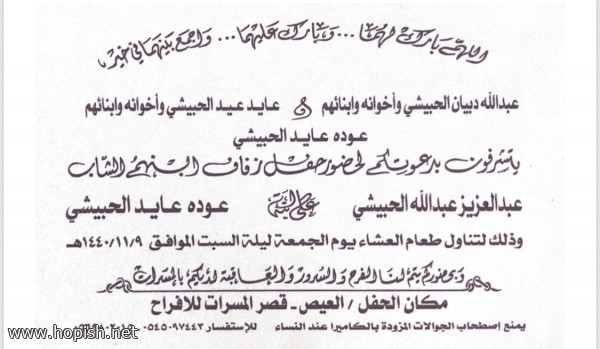 اللهم بارك لهما ... وبارك عليهما ... واجمع بينهما في خير
عبدالله دبيان الحبيشي وأخوانه وابنائهم و عايد عيد الحبيشي وأخوانه وابنائهم
عوده عايد الحبيشي
يتشرفون بدعوتكم لحضور حفل زفاف ابنهم الشاب
عبدالعزيز عبدالله الحبيشي على ابنة عوده عايد الحبيشي
وذلك لتناول طعام العشاء يوم الجمعة ليلة السبت الموافق ١٤٤٠/١١/٩هـ
وبحضوركم يتم لنا الفرح والسرور والعاقبة لديكم بالمسرات
مكان الحفل / العيص - قصر المسرات للافراح
يمنع إصطحاب الجوالات المزودة بالكاميرا عند النساء للإستفسار ٠٥٤٥٠٩٧٤٤٣
www.hopish.net